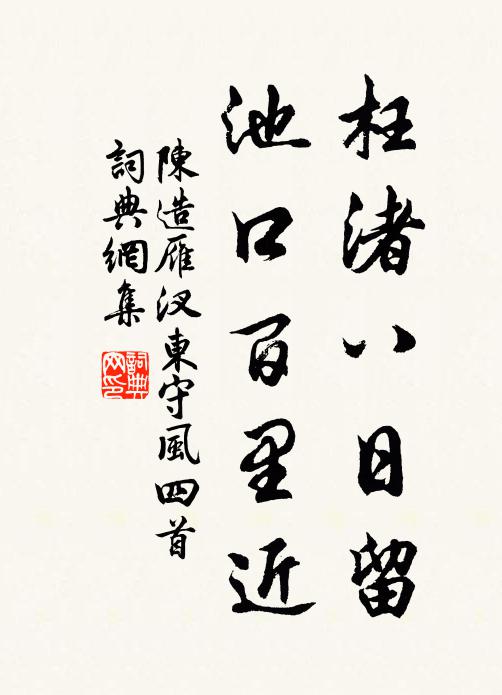 枉渚八日留
池口百里近
陳造雁汊東守風四首
詞典網集
詞典網印